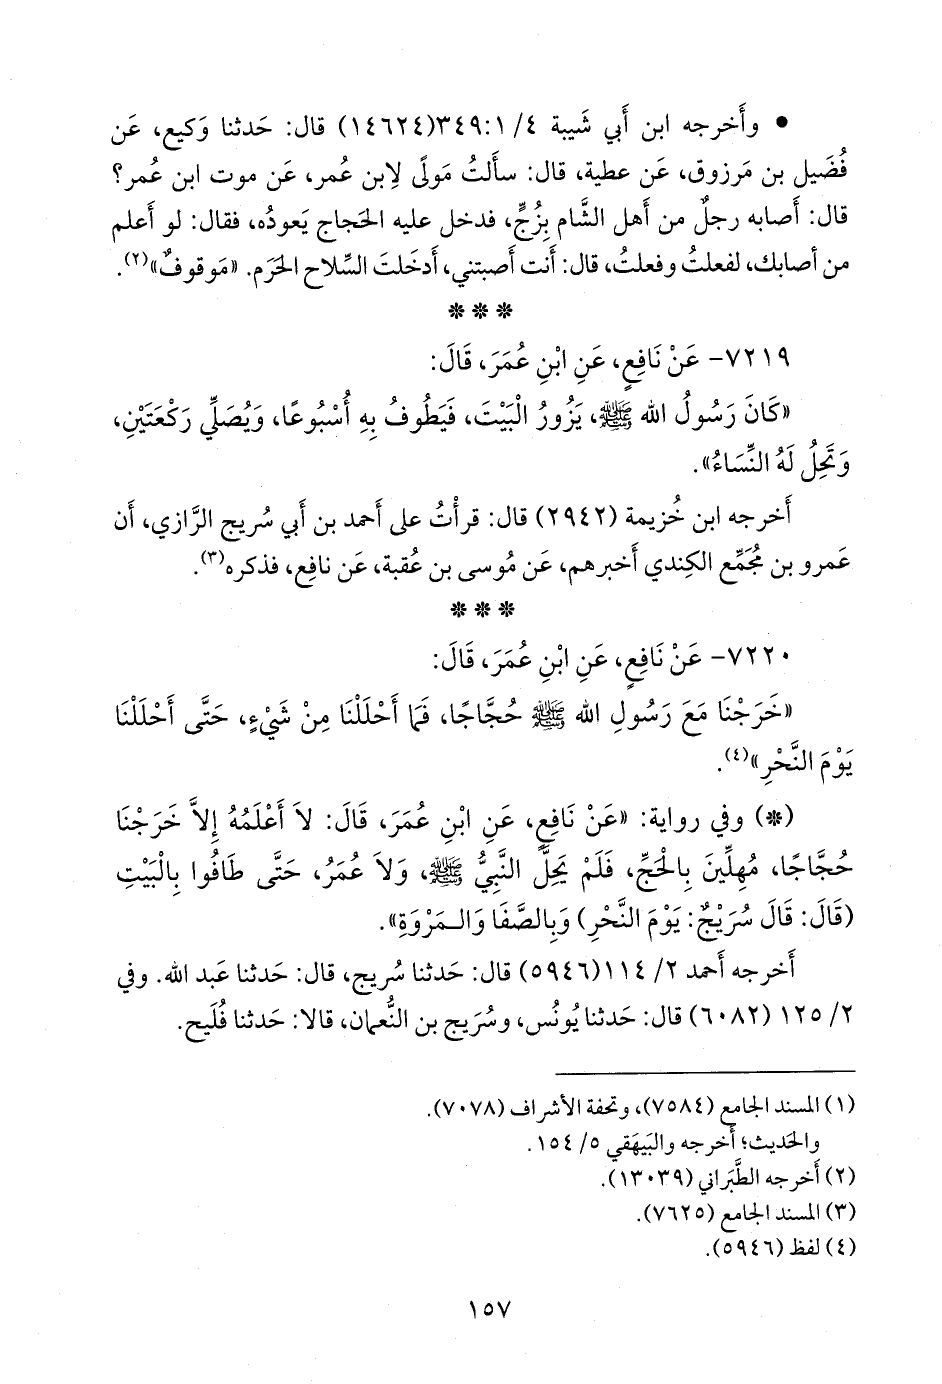 • وأَخرجه ابن أَبي شَيبة ٤/ ٣٤٩:١(١٤٦٢٤) قال: حَدثنا وَكيع، عَن
فُضَيل بن مَرزوق، عَن عطية، قال: سأَلتُ مَولًى لِابن عُمر، عَن موت ابن عُمر؟
قال: أَصابه رجلٌ من أَهل الشَّام بِزُجٍّ، فدخل عليه الحَجاج يَعودُه، فقال: لو أَعلم
من أَصابك، لفعلتُ وفعلتُ، قال: أَنت أَصبتني، أَدخَلتَ السِّلاح الحَرَم. «مَوقوفٌ»(٢).
* * *
٧٢١٩- عَنْ نَافِعٍ، عَنِ ابْنِ عُمَرَ، قَالَ:
«كَانَ رَسُولُ الله ﷺ، يَزُورُ الْبَيْتَ، فَيَطُوفُ بِهِ أُسْبُوعًا، وَيُصَلِّي رَكْعَتَيْنِ،
وَتَحِلُ لَهُ النِّسَاءُ».
أَخرجه ابن خُزيمة (٢٩٤٢) قال: قرأْتُ على أَحمد بن أَبي سُريج الرَّازي، أَن
عَمرو بن مُجَمِّع الكِندي أَخبرهم، عَن مُوسى بن عُقبة، عَن نافِع، فذكره(٣).
* * *
٧٢٢٠- عَنْ نَافِعٍ، عَنِ ابْنِ عُمَرَ، قَالَ:
«خَرَجْنَا مَعَ رَسُولِ الله ﷺ حُجَّاجًا، فَمَا أَحْلَلْنَا مِنْ شَيْءٍ، حَتَّى أَحْلَلْنَا
يَوْمَ النَّحْرِ»(٤).
(*) وفي رواية: «عَنْ نَافِعٍ، عَنِ ابْنِ عُمَرَ، قَالَ: لاَ أَعْلَمُهُ إِلاَّ خَرَجْنَا
حُجَّاجًا، مُهِلِّينَ بِالْحَجِّ، فَلَمْ يَحِلَّ النَّبِيُّ ﷺ، وَلاَ عُمَرُ، حَتَّى طَافُوا بِالْبَيْتِ
(قَالَ: قَالَ سُرَيْجٌ: يَوْمَ النَّحْرِ) وَبِالصَّفَا وَالـمَرْوَةِ».
أَخرجه أَحمد ٢/ ١١٤(٥٩٤٦) قال: حَدثنا سُريج، قال: حَدثنا عَبد الله. وفي
٢/ ١٢٥ (٦٠٨٢) قال: حَدثنا يُونُس، وسُرَيج بن النُّعمان، قالا: حَدثنا فُلَيح.
(١) المسند الجامع (٧٥٨٤)، وتحفة الأشراف (٧٠٧٨).
والحَديث؛ أَخرجه والبَيهَقي ٥/ ١٥٤.
(٢) أَخرجه الطَّبَراني (١٣٠٣٩).
(٣) المسند الجامع (٧٦٢٥).
(٤) لفظ (٥٩٤٦).
١٥٧